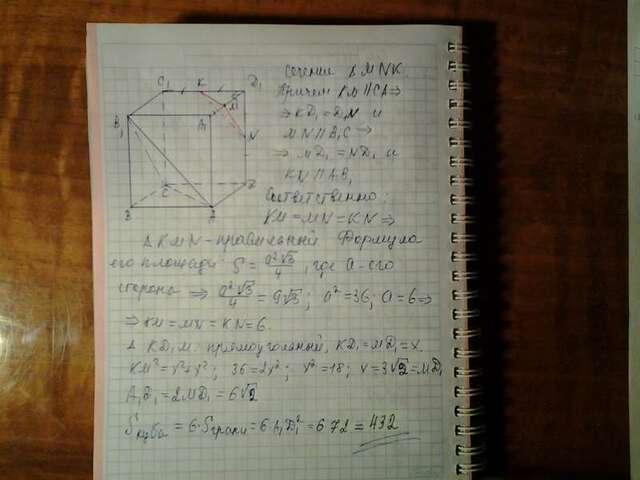 C₁ K D₁
M
B₁ A₁
N
C D
B A
сечение Δ MNK.
Причем KM || CA ⇒
⇒ KD₁ = D₁N и
MN || B₁C ⇒
⇒ MD₁ = ND₁ и
KN || A₁B₁
Соответственно:
KM = MN = KN ⇒
Δ KMN - правильный Формула
его площади: S = a²√3/4, где a - его
сторона ⇒ a²√3/4 = 9√3; a² = 36; a = 6 ⇒
⇒ KM = MN = KN = 6.
Δ KD₁M: прямоугольный, KD₁ = MD₁ = x.
KM² = x² + x²; 36 = 2x²; x² = 18; x = 3√2 = MD₁
A₁D₁ = 2MD₁ = 6√2
Sкуба = 6·Sграни = 6·A₁D₁² = 6·72 = 432